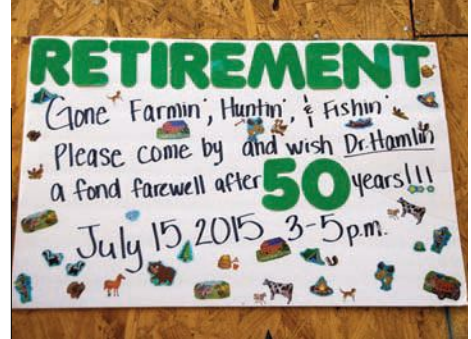 RETIREMENT
Gone Farmin', Huntin', & Fishin'
Please come by and wish Dr. Hamlin
a fond farewell after 50 years!!!
July 15, 2015 3-5 p.m.